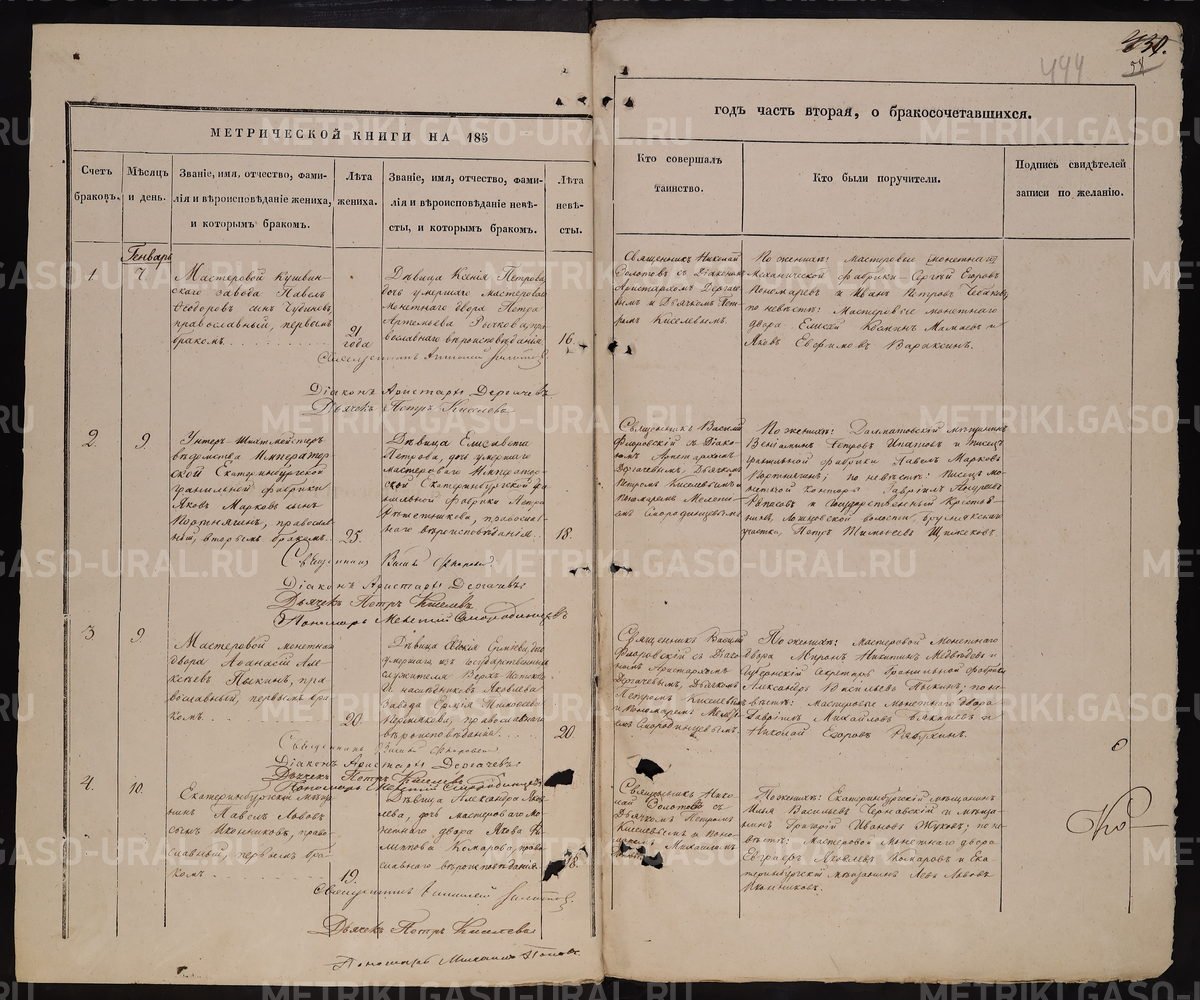 430.
444
58
МЕТРИЧЕСКОЙ КНИГИ НА 185
Счетъ
браковъ.
Мѣсяцъ
и день.
Званіе, имя, отчество, фами-
лія и вѣроисповѣданіе жениха,
и которымъ бракомъ.
Лѣта
жениха.
Званіе, имя, отчество, фами-
лія и вѣроисповѣданіе невѣ-
сты, и которымъ бракомъ.
Лѣта
невѣ-
сты.
годъ часть вторая, о бракосочетавшихся.
Кто совершалъ
таинство.
Кто были поручители.
Подпись свидѣтелей
записи по желанію.
Генварь
1
7
Мастеровой Кушвин-
скаго завода Павелъ
Ѳедоровъ сынъ
православный, первымъ
бракомъ
21
года
Дѣвица Ксенія Петрова
дочь умершаго мастероваго
монетнаго двора Петра
Артемьева
вославнаго вѣроисповѣданія
16
Священникъ Николай
съ Діакономъ
Аристархомъ Дергаче-
вымъ и Дьячкомъ Пет-
ромъ Киселевымъ.
По женихѣ: Мастеровые монетной
механической фабрики Сергѣй Егоровъ
Пономаревъ и Иванъ Петровъ
по невѣстѣ: Мастеровые монетнаго
двора Елисей и
Яковъ Евфимовъ Вараксинъ.
Діаконъ Аристархъ Дергачевъ
Дьячекъ Петръ Киселевъ
2.
9
Унтеръ-Шихтмейстеръ
вѣдомства Император-
ской Екатеринбургской
гранильной фабрики
Яковъ Марковъ сынъ
Портнягинъ, православ-
ный, вторымъ бракомъ
25.
Дѣвица Елисавета
Петрова, дочь умершаго
мастероваго Император-
ской Екатеринбургской гра-
нильной фабрики Петра
православ-
наго вѣроисповѣданія
18.
Священникъ Василій
Флоровскій съ Діако-
номъ Аристархомъ
Дергачевымъ, Дьячкомъ
Петромъ Киселевымъ и
Пономаремъ Мелеті-
емъ Смородинцевымъ
По женихѣ: Далматовскій мѣщанинъ
Веніаминъ Петровъ Ипатовъ и писецъ
гранильной фабрики Павелъ Марковъ
Портнягинъ; по невѣстѣ: Писецъ мо-
нетной конторы Гавріилъ Андреевъ
и Государственный крестья-
нинъ, волости,
участка, Петръ Тимофеевъ
Священникъ Василій Флоровскій
Діаконъ Аристархъ Дергачевъ
Дьячекъ Петръ Киселевъ
Пономарь Мелетій Смородинцевъ
3
9.
Мастеровой монетнаго
двора Аѳанасій Але-
ксѣевъ Пыкинъ, пра-
вославный, первымъ бра-
комъ
20.
Дѣвица дочь
умершаго изъ государственныхъ
служителя Верхъ
наслѣдниковъ Яковлева
завода
православнаго
вѣроисповѣданія
20
Священникъ Василій
Флоровскій съ Діако-
номъ Аристархомъ
Дергачевымъ, Дьячкомъ
Петромъ Киселевымъ
и Пономаремъ Мелеті-
емъ Смородинцевымъ.
По женихѣ: мастеровой Монетнаго
двора Миронъ Никитинъ Медвѣдевъ и
Губернскій Секретарь Гранильной фабрики
Александръ Васильевъ Пыкинъ; по не-
вѣстѣ: мастеровые монетнаго двора
Гавріилъ Михайловъ и
Николай Егоровъ Рябухинъ.
Священникъ Василій Флоровскій
Діаконъ Аристархъ Дергачевъ
Дьячекъ Петръ Киселевъ
Пономарь Мелетій Смородинцевъ
4.
10.
Екатеринбургскій мѣща-
нинъ Павелъ Львовъ
сынъ Иконниковъ, право-
славный, первымъ бра-
комъ
19.
Дѣвица Александра Яков-
лева, дочь мастероваго Мо-
нетнаго двора Якова
Комарова, право-
славнаго вѣроисповѣданія
18.
Священникъ Нико-
лай съ
Дьячкомъ Петромъ
Киселевымъ и Поно-
маремъ Михаиломъ
По женихѣ: Екатеринбургскій мѣщанинъ
Илья Васильевъ Чернавскій и мѣща-
нинъ Григорій Ивановъ Жуковъ; по не-
вѣстѣ: Мастеровой Монетнаго двора
Евграфъ Яковлевъ Комаровъ и Ека-
теринбургскій мѣщанинъ Левъ Львовъ
Иконниковъ.
Дьячекъ Петръ Киселевъ
Пономарь Михаилъ Поповъ
METRIKI.GASO-URAL.RU